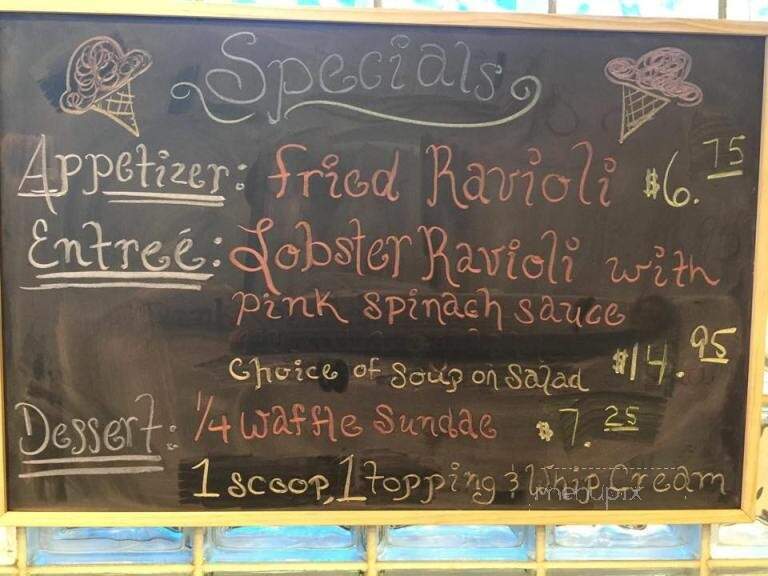 Specials
Appetizer: fried Ravioli $6.75
Entreé: Lobster Ravioli with
pink spinach sauce
Choice of Soup on Salad $14.95
Dessert: 1/4 Waffle Sundae $7.25
1 scoop, 1 topping & Whip Cream
menupix